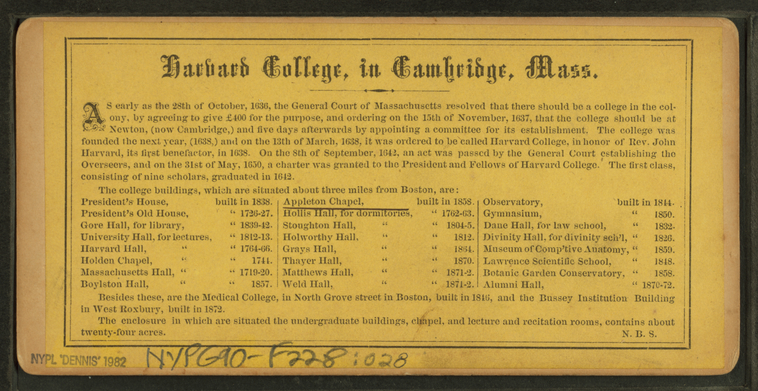 Harvard College, in Cambridge, Mass.
AS early as the 28th of October, 1636, the General Court of Massachusetts resolved that there should be a college in the col-
ony, by agreeing to give £400 for the purpose, and ordering on the 15th of November, 1637, that the college should be at
Newton, (now Cambridge,) and five days afterwards by appointing a committee for its establishment. The college was
founded the next year, (1638,) and on the 13th of March, 1638, it was ordered to be called Harvard College, in honor of Rev. John
Harvard, its first benefactor, in 1638. On the 8th of September, 1642, an act was passed by the General Court establishing the
Overseers, and on the 31st of May, 1650, a charter was granted to the President and Fellows of Harvard College. The first class,
consisting of nine scholars, graduated in 1642.
The college buildings, which are situated about three miles from Boston, are:
President's House, built in 1838.
President's Old House, " 1726-27.
Gore Hall, for library, " 1839-42.
University Hall, for lectures, " 1812-13.
Harvard Hall, " " 1764-66.
Holden Chapel, " " 1744.
Massachusetts Hall, " " 1719-20.
Boylston Hall, " " 1857.
Appleton Chapel, built in 1858.
Hollis Hall, for dormitories, " 1762-63.
Stoughton Hall, " " 1804-5.
Holworthy Hall, " " 1812.
Grays Hall, " " 1864.
Thayer Hall, " " 1870.
Matthews Hall, " " 1871-2.
Weld Hall, " " 1871-2.
Observatory, built in 1844.
Gymnasium, " 1859.
Dane Hall, for law school, " 1832.
Divinity Hall, for divinity sch'l, " 1826.
Museum of Comp'tive Anatomy, " 1859.
Lawrence Scientific School, " 1848.
Botanic Garden Conservatory, " 1858.
Alumni Hall, " 1870-72.
Besides these, are the Medical College, in North Grove street in Boston, built in 1846, and the Bussey Institution Building
in West Roxbury, built in 1872.
The enclosure in which are situated the undergraduate buildings, chapel, and lecture and recitation rooms, contains about
twenty-four acres. N. B. S.
NYPL 'DENNIS' 1982 NYPG90-F228:028